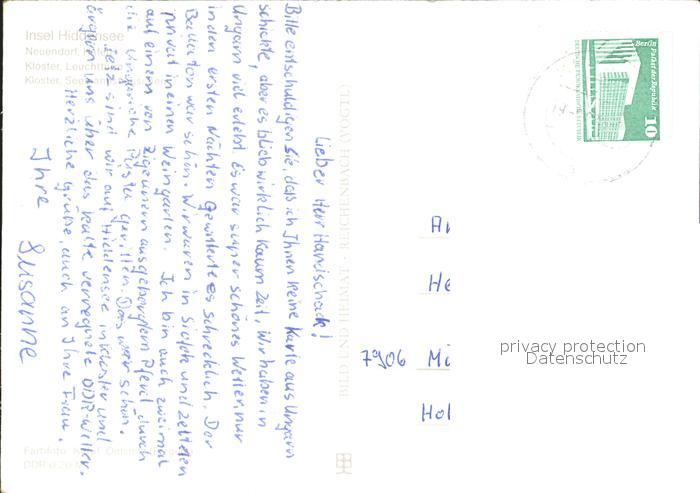 Lieber Herr Handschack!
Bitte entschuldigen Sie, daß ich Ihnen keine Karte aus Ungarn
schickte, aber es blieb wirklich kaum Zeit, wir haben in
Ungarn viel erlebt. Es war super schönes Wetter, nur
in den ersten Nächten Gewitterte es schrecklich. Der
Balaton war schön. Wir waren in Siofok und zelteten
privat in einem Weingarten. Ich bin auch zweimal
auf einem von Zigeunern ausgeborgtem Pferd durch
die ungarische Pusta geritten. Das war schön.
Jetzt sind wir auf Hiddensee in Kloster und
ärgern uns über das kalte verregnete DDR-Wetter.
Herzliche Grüße, auch an Ihre Frau.
Ihre Susanne
Insel Hiddensee
Neuendorf,
Kloster, Leuchtturm
Kloster,
Farbfoto:
DDR
BILD UND HEIMAT REICHENBACH (VOGTL)
Berlin Palast der Republik
10
DEUTSCHE DEMOKRATISCHE REPUBLIK
An
He
7906 Mi
Hol
privacy protection
Datenschutz